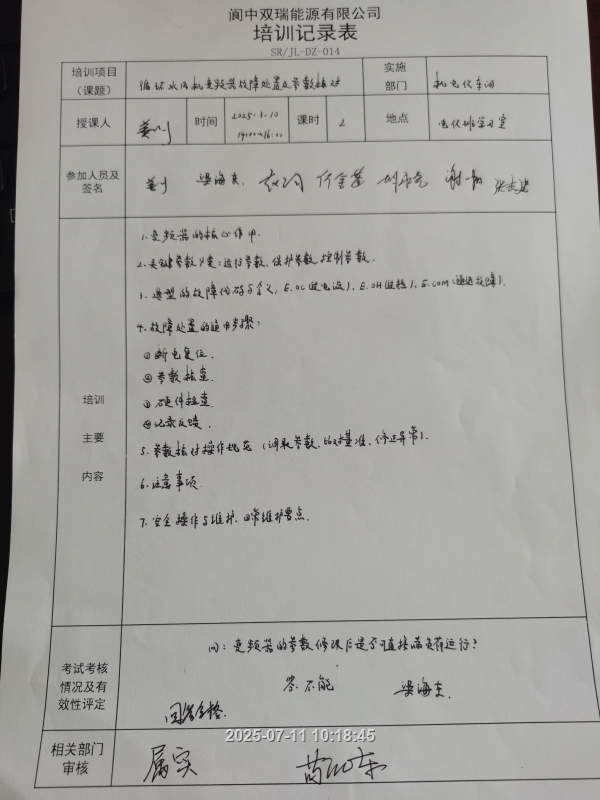 阆中双瑞能源有限公司
培训记录表
SR/JL-DZ-014
培训项目（课题） 循环水风机变频器故障处置及参数核对 实施部门 机电仪车间
授课人 姜川 时间 2025.7.10 14:00~16:00 课时 2 地点 电仪班学习室
参加人员及签名 姜川 梁海东
培训主要内容
1.变频器的核心作用.
2.关键参数分类:运行参数、保护参数、控制参数.
3.典型的故障代码与含义, E.OC(过电流)、E.OH(过热)、E.COM(通迅故障).
4.故障处置的通用步骤:
①断电复位.
②参数核查.
③硬件检查.
④记录反馈.
5.参数核对操作规范(调取参数、对基准、修正异常).
6.注意事项.
7.安全操作与维护.日常维护要点.
考试考核情况及有效性评定
问:变频器的参数修改后是否可直接满负荷运行?
答.不能 梁海东.
回答合格.
2025-07-11 10:18:45
相关部门审核 属实